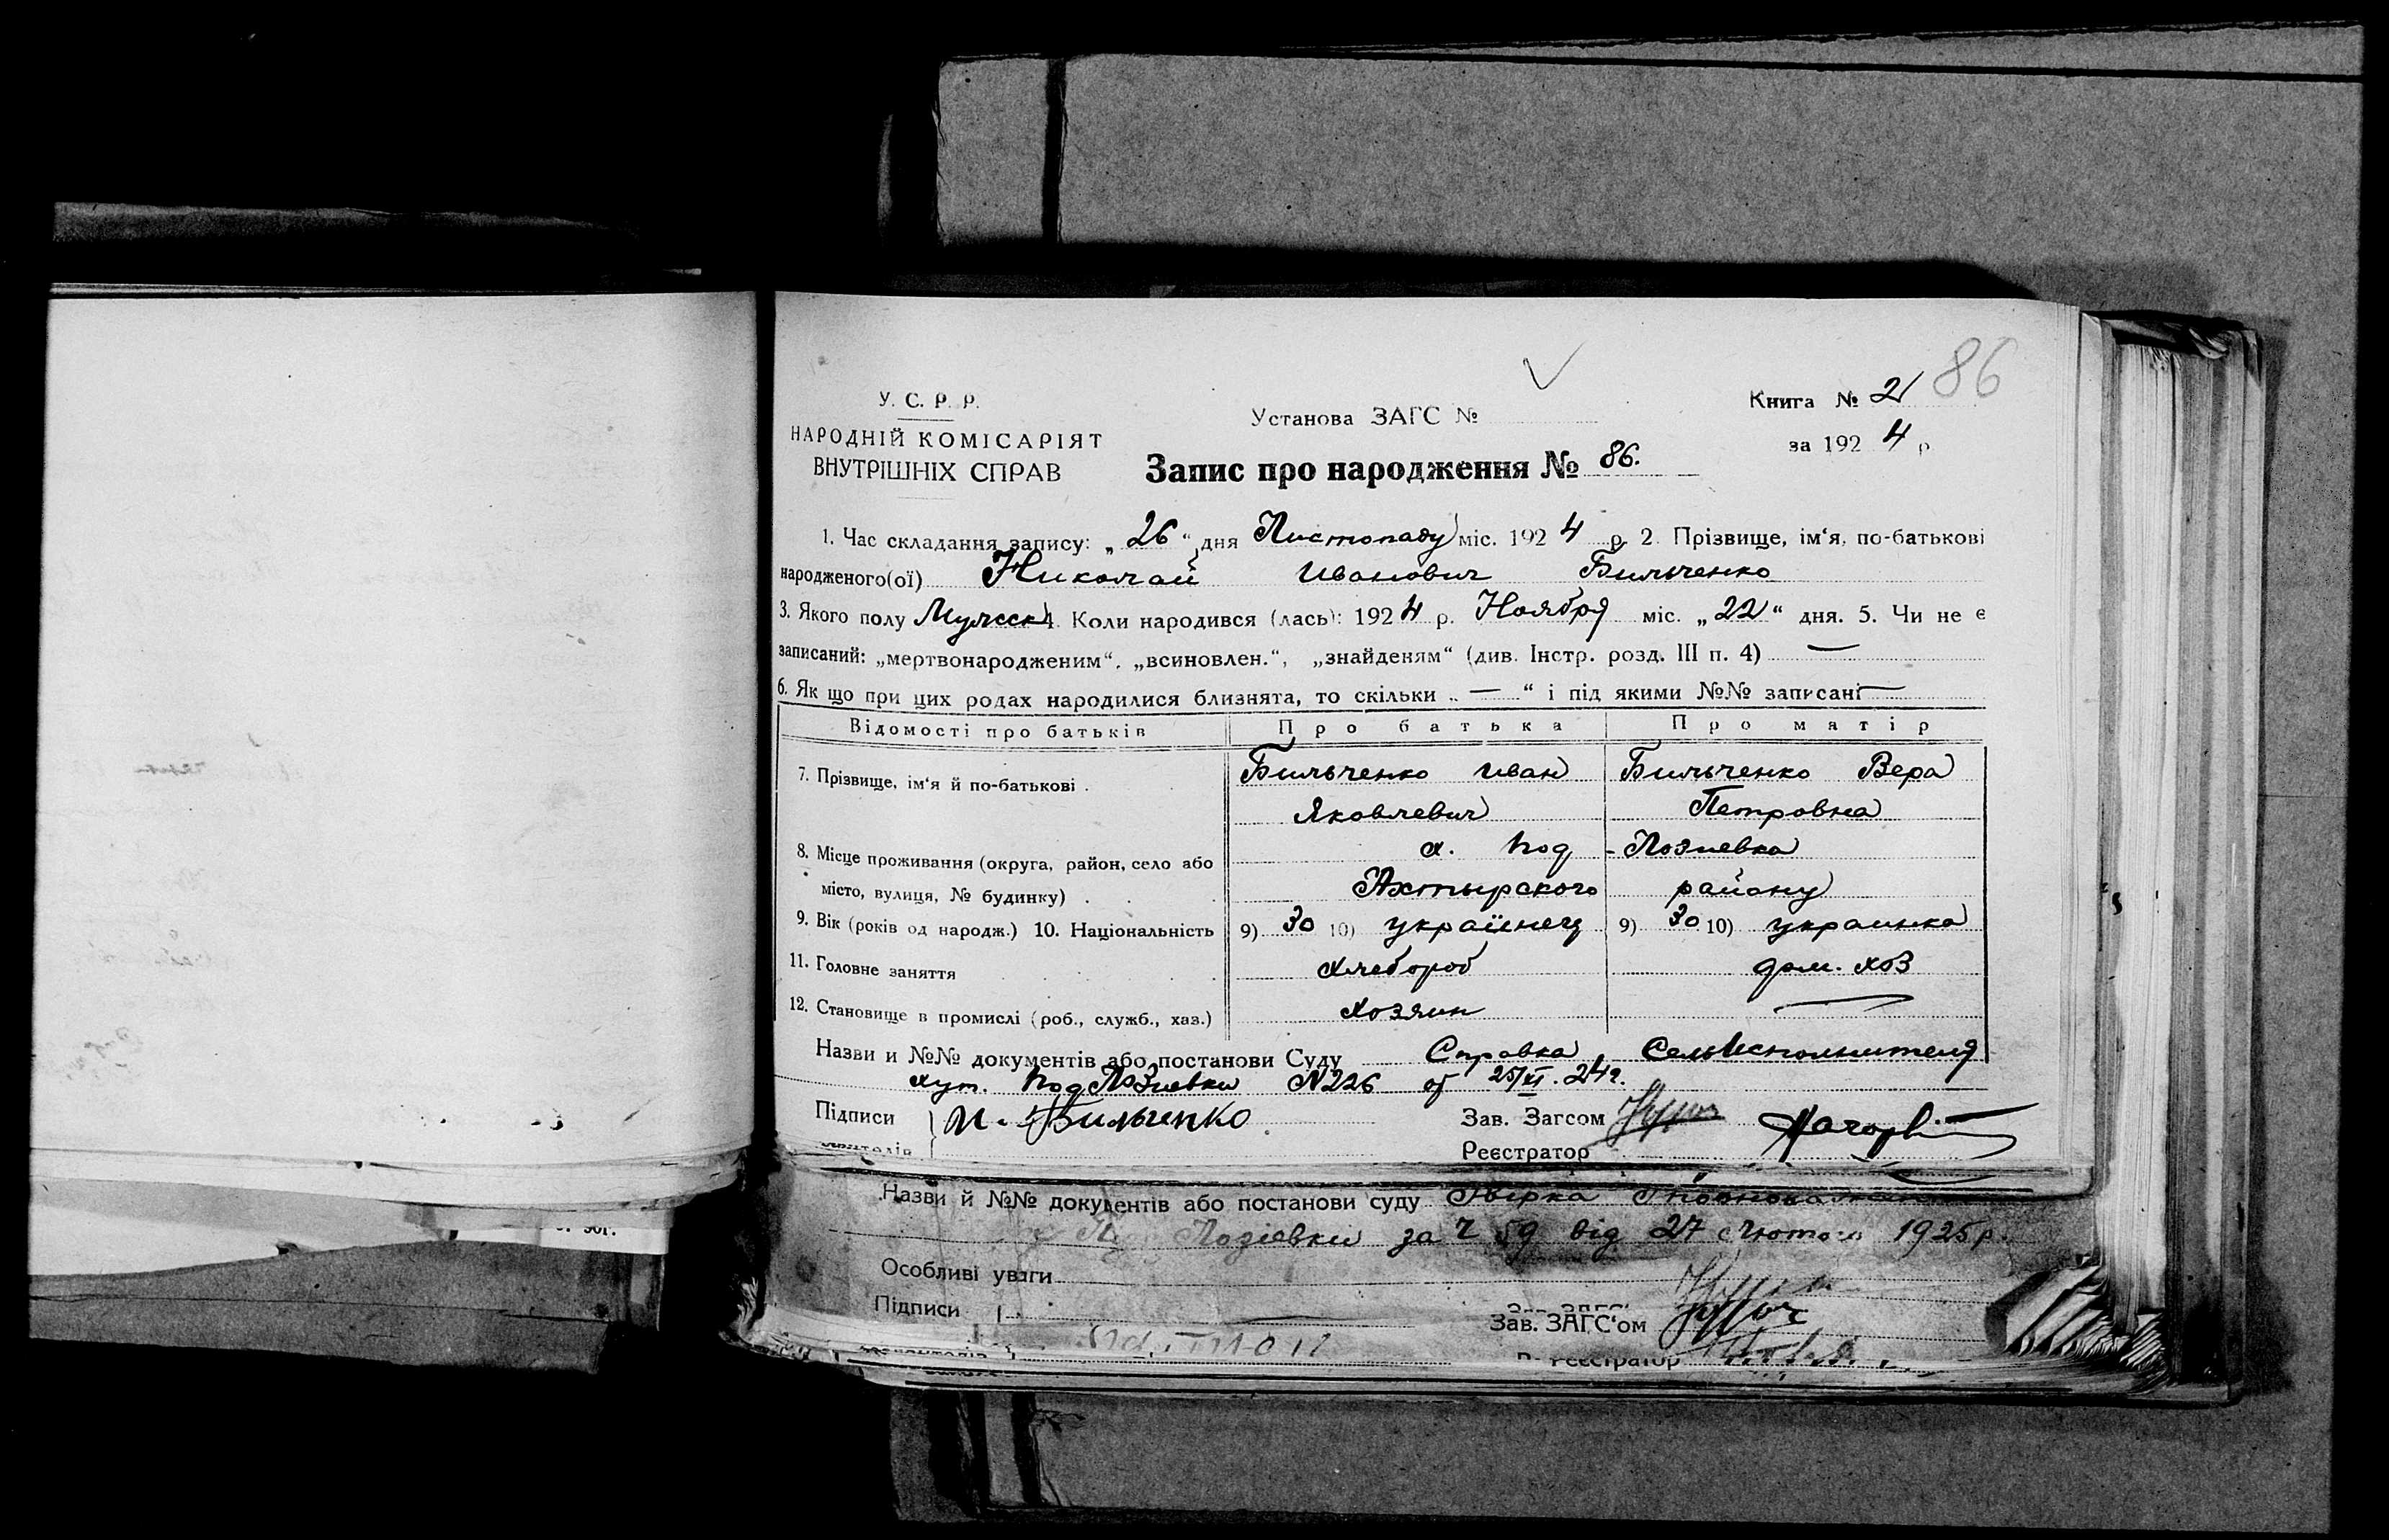 86
У. С. Р. Р.
НАРОДНІЙ КОМІСАРІЯТ
ВНУТРІШНІХ СПРАВ
Установа ЗАГС №
Книга № 2
за 1924 р.
Запис про народження № 86.
1. Час складання запису: „26“ дня Листопаду міс. 1924 р. 2. Прізвище, ім‘я, по-батькові
народженого(ої) Николай Иванович Бильченко
3. Якого полу Мужск 4. Коли народився (лась): 1924 р. Ноября міс. „22“ дня. 5. Чи не є
записаний: „мертвонародженим“, „всиновлен.“, „знайденям“ (див. Інстр. розд. III п. 4) —
6. Як що при цих родах народилися близнята, то скільки „ — “ і під якими №№ записані —
Відомості про батьків Про батька Про матір
7. Прізвище, ім‘я й по-батькові . Бильченко Иван Бильченко Вера
Яковлевич Петровна
8. Місце проживання (округа, район, село або х. Под - Лозиевка
місто, вулиця, № будинку) . . . Ахтырского району
9. Вік (років од народж.) 10. Національність 9) 30 10) украінец 9) 30 10) украинка
11. Головне заняття Хлебороб дом. хоз
12. Становище в промислі (роб., служб., хаз.) Хозяин —
Назви и №№ документів або постанови Суду Справка, Сельисполнителя
хут. Под Лозиевки N226 от 25/XI.24г.
Підписи И. Бильченко Зав. Загсом
Реєстратор
Назви й №№ документів або постанови суду
Лозіевки за Ч 59 від 27 Лютого 1925 р.
Особливі уваги
Підписи
Зав. ЗАГС‘ом
Реєстратор